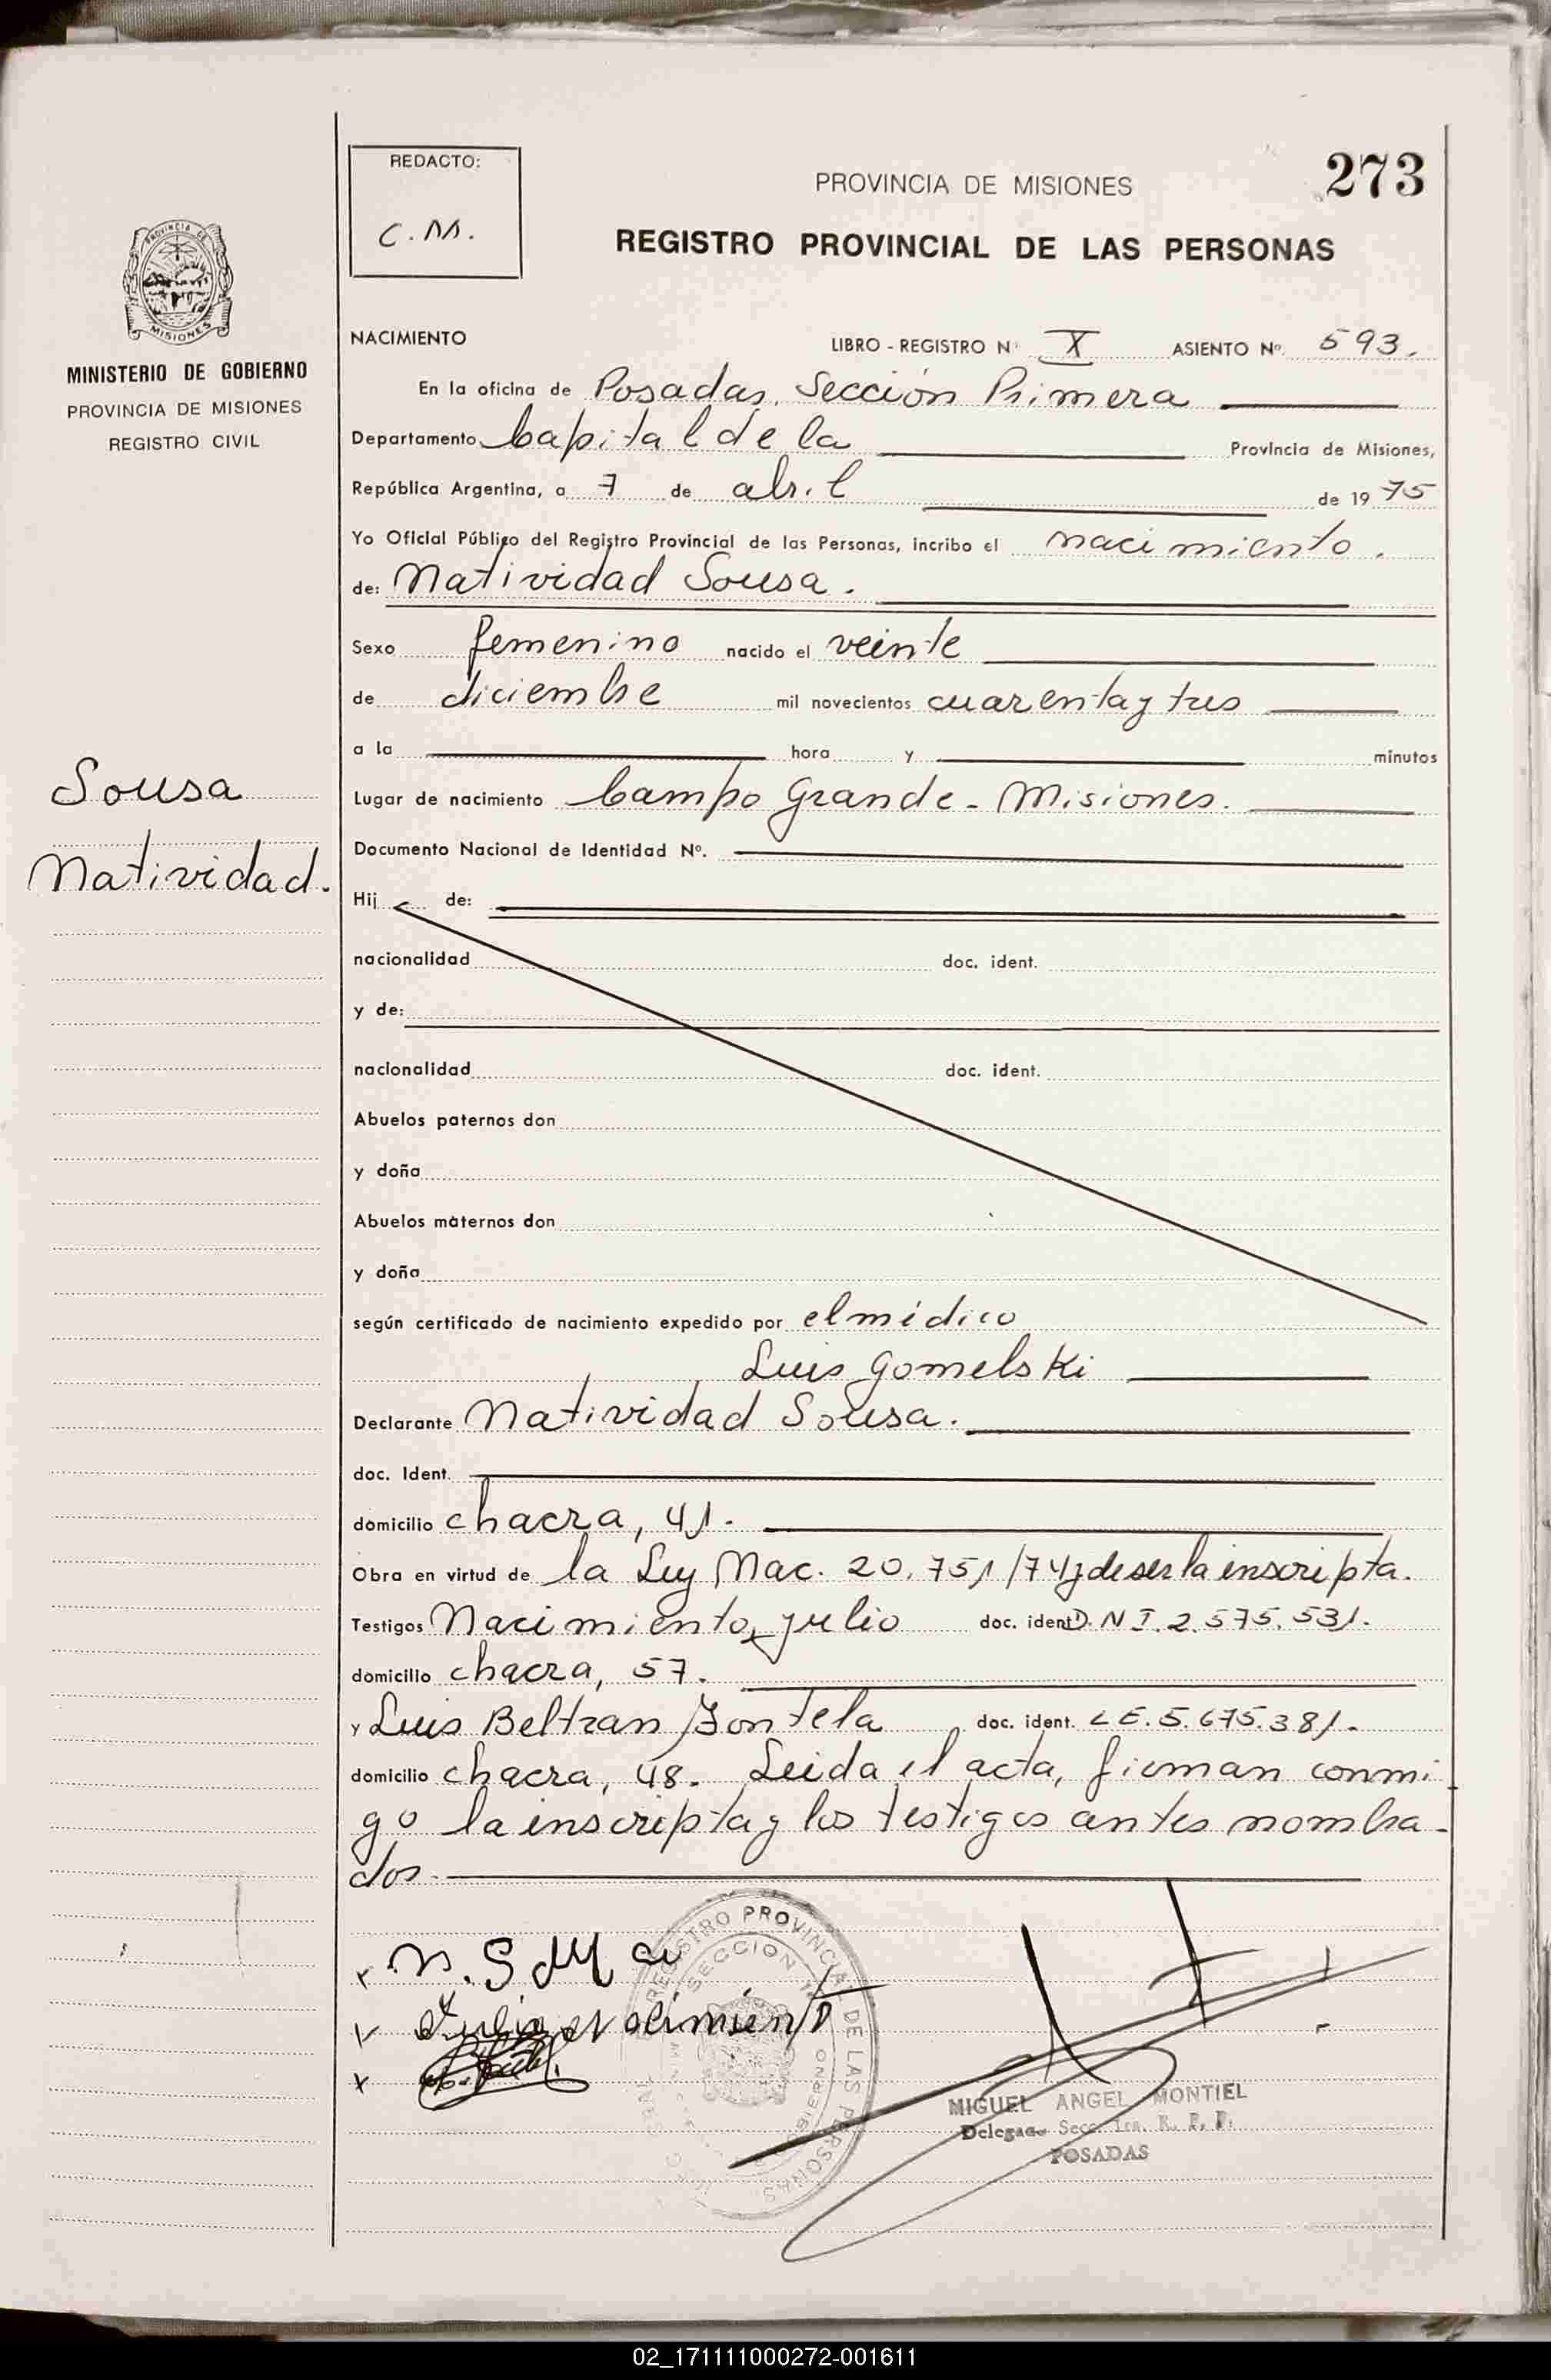 REDACTO:
C.M.
PROVINCIA DE MISIONES
273
REGISTRO PROVINCIAL DE LAS PERSONAS
PROVINCIA DE
MISIONES
MINISTERIO DE GOBIERNO
PROVINCIA DE MISIONES
REGISTRO CIVIL
NACIMIENTO LIBRO - REGISTRO Nº X ASIENTO Nº 593.
En la oficina de Posadas, Sección Primera
Departamento Capital de la Provincia de Misiones,
República Argentina, a 7 de abril de 1975
Yo Oficial Público del Registro Provincial de las Personas, incribo el nacimiento.
de: Natividad Sousa.
Sexo femenino nacido el veinte
de diciembre mil novecientos cuarenta y tres
a la hora y minutos
Sousa
Natividad.
Lugar de nacimiento Campo Grande - Misiones.
Documento Nacional de Identidad Nº.
Hij de:
nacionalidad doc. ident.
y de:
nacionalidad doc. ident.
Abuelos paternos don
y doña
Abuelos maternos don
y doña
según certificado de nacimiento expedido por el médico
Luis Gomelski
Declarante Natividad Sousa.
doc. Ident.
domicilio chacra, 41.
Obra en virtud de la Ley Nac. 20.751/74 y de ser la inscripta.
Testigos Nacimiento, Julio doc. ident D.N I. 2.575.531.
domicilio chacra, 57.
y Luis Beltran doc. ident. LE. 5.675.381.
domicilio chacra, 48. Leida el acta, firman conmi
go la inscripta y los testigos antes nombra-
dos
REGISTRO PROVINCIAL DE LAS PERSONAS
SECCION 1
GOBIERNO
MIGUEL ANGEL MONTIEL
Delegado Secc. 1ra. R. P. P.
POSADAS
02_171111000272-001611